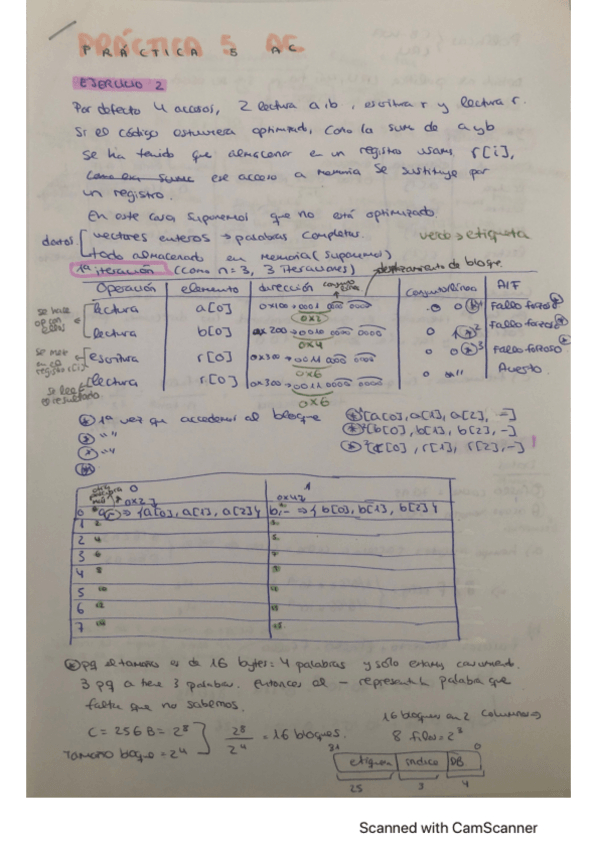 PRÁCTICA 5 AC
PRÁCTICA 5 AC
EJERCICIO 2
Por defecto 4 accesos, 2 lectura a,b, escritura r y lectura r.
Si el código estuviera optimizado, como la suma de a y b
se ha tenido que almacenar en un registro usamos r[i],
ese acceso a memoria se sustituye por
un registro.
En este caso suponemos que no está optimizado.
datos vectores enteros → palabras completas. verde → etiqueta
todo almacenado en memoria (suponemos)
1ª iteración (como n=3, 3 iteraciones) desplazamiento de bloque
Operación elemento dirección conjunto línea A/F
lectura a[0] 0x100 → 0001 0000 0000 0 0 Fallo forzoso
0x2
lectura b[0] 0x200 → 0010 0000 0000 0 1 Fallo forzoso
0x4
escritura r[0] 0x300 → 0011 0000 0000 0 0 Fallo forzoso
0x6
lectura r[0] 0x300 → 0011 0000 0000 0 " Acierto
0x6
se lee
el resultado
1ª vez que accedemos al bloque [a[0], a[1], a[2], -]
" " [b[0], b[1], b[2], -]
" " [r[0], r[1], r[2], -]
0 1
0x2 0x4
0 → {a[0], a[1], a[2]} → {b[0], b[1], b[2]}
1 2
2 4
3 6
4 8
5 10
6 12
7 14
pq el tamaño es de 16 bytes = 4 palabras y sólo estamos
3 pq a tiene 3 palabras. Entonces el - representa la palabra que
falta que no sabemos.
C = 256B = 2⁸ 2⁸/2⁴ = 16 bloques. 16 bloques en 2 columnas ⇒
Tamaño bloque = 2⁴ 8 filas = 2³
31 0
etiqueta índice DB
25 3 4
Scanned with CamScanner